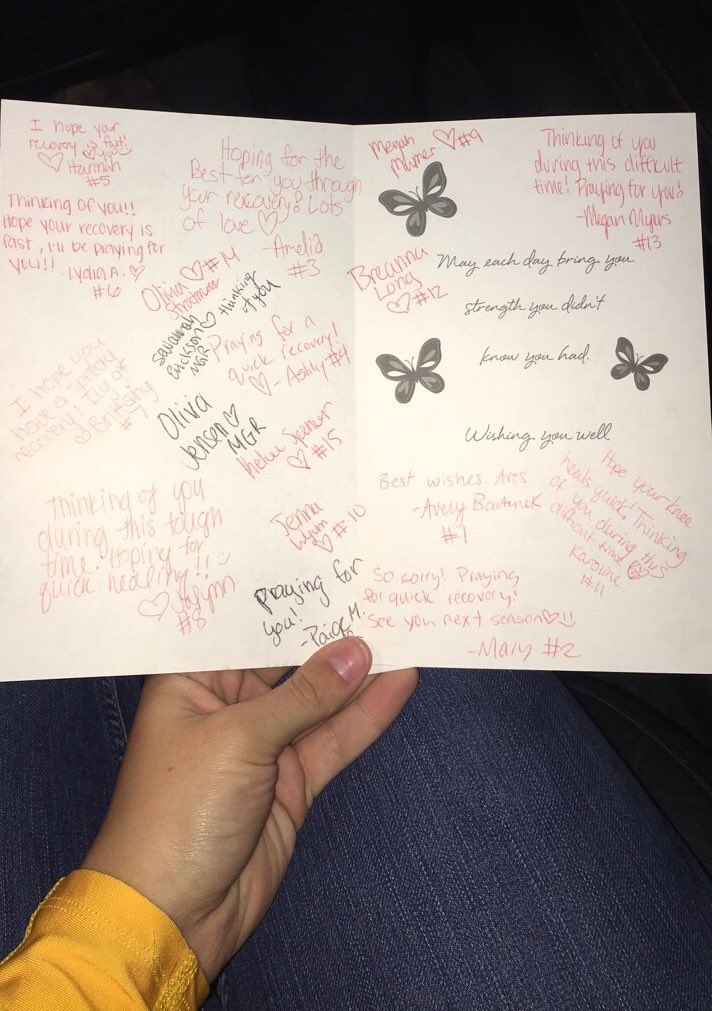 I hope your
recovery is fast!
♡ Hannah
#5
Thinking of you!!
Hope your recovery is
fast, i'll be praying for
you!! -Lydia A. ♡
#6
Hoping for the
Best for you through
your recovery! Lots
of love ♡
-Amelia
#3
Olivia ♡ #14
Savannah
Erickson ♡
MGR
thinking
of you
Praying for a
quick recovery!
♡ - Ashley #4
I hope you
have a speedy
recovery! ILY
♡ Brittany
#7
Olivia
Jensen ♡
MGR
Spencer
♡ #15
Thinking of you
during this tough
time. Hoping for
quick healing!! :)
♡ Jaylynn
#8
Jenna
♡ #10
praying for
you!
-Paige M.
Megan ♡ #9
Thinking of you
during this difficult
time! Praying for you!
-Megan Myers
#13
Breanna
Long
♡ #12
May each day bring you
strength you didn't
know you had.
Wishing you well
Best wishes.
-Avery
#1
Hope your knee
heals quick! Thinking
of you during this
difficult time ♡
Karoline
#11
So sorry! Praying
for quick recovery!
See you next season ♡ :)
-Mary #2